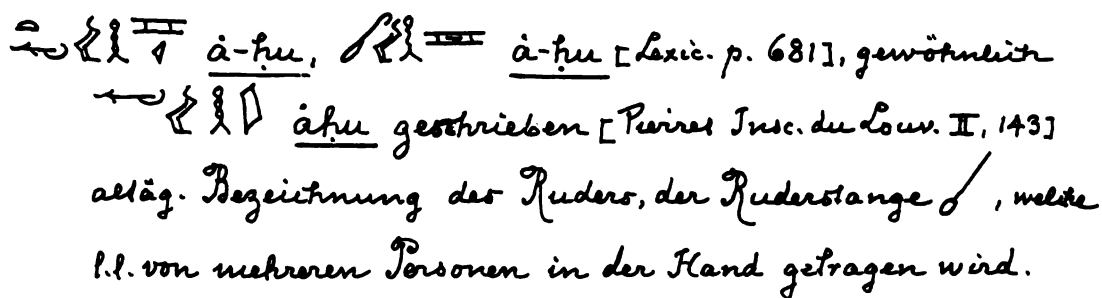 ȧ-ḥu, ȧ-ḥu [Lexic. p. 681], gewöhnlich
ȧḥu geschrieben [Pierres Insc. du Louv. II, 143]
altäg. Bezeichnung des Ruders, der Ruderstange, welche
l.l. von mehreren Personen in der Hand getragen wird.